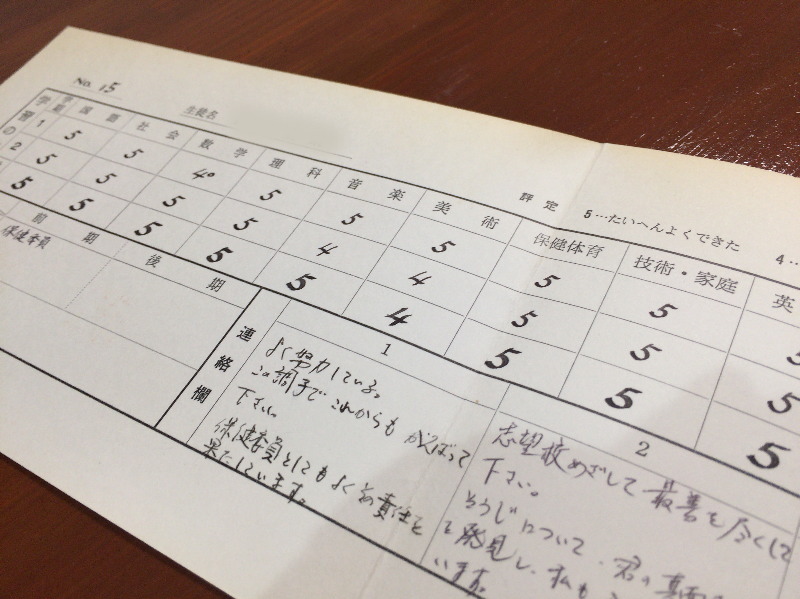 No. 15
生徒名
評定 5…たいへんよくできた 4…
学期 国語 社会 数学 理科 音楽 美術 保健体育 技術・家庭 英
1 5 5 4 5 5 5 5 5 5
2 5 5 5 5 4 4 5 5 5
5 5 5 5 5 4 5 5 5
前期 後期
保健委員
連絡欄
1
よく努力している。
この調子でこれからもがんばって
下さい。
保健委員としてもよく責任を
果たしています。
2
志望校めざして最善を尽くして
下さい。
そうじについて、君の真面
を発見し、私も
います。